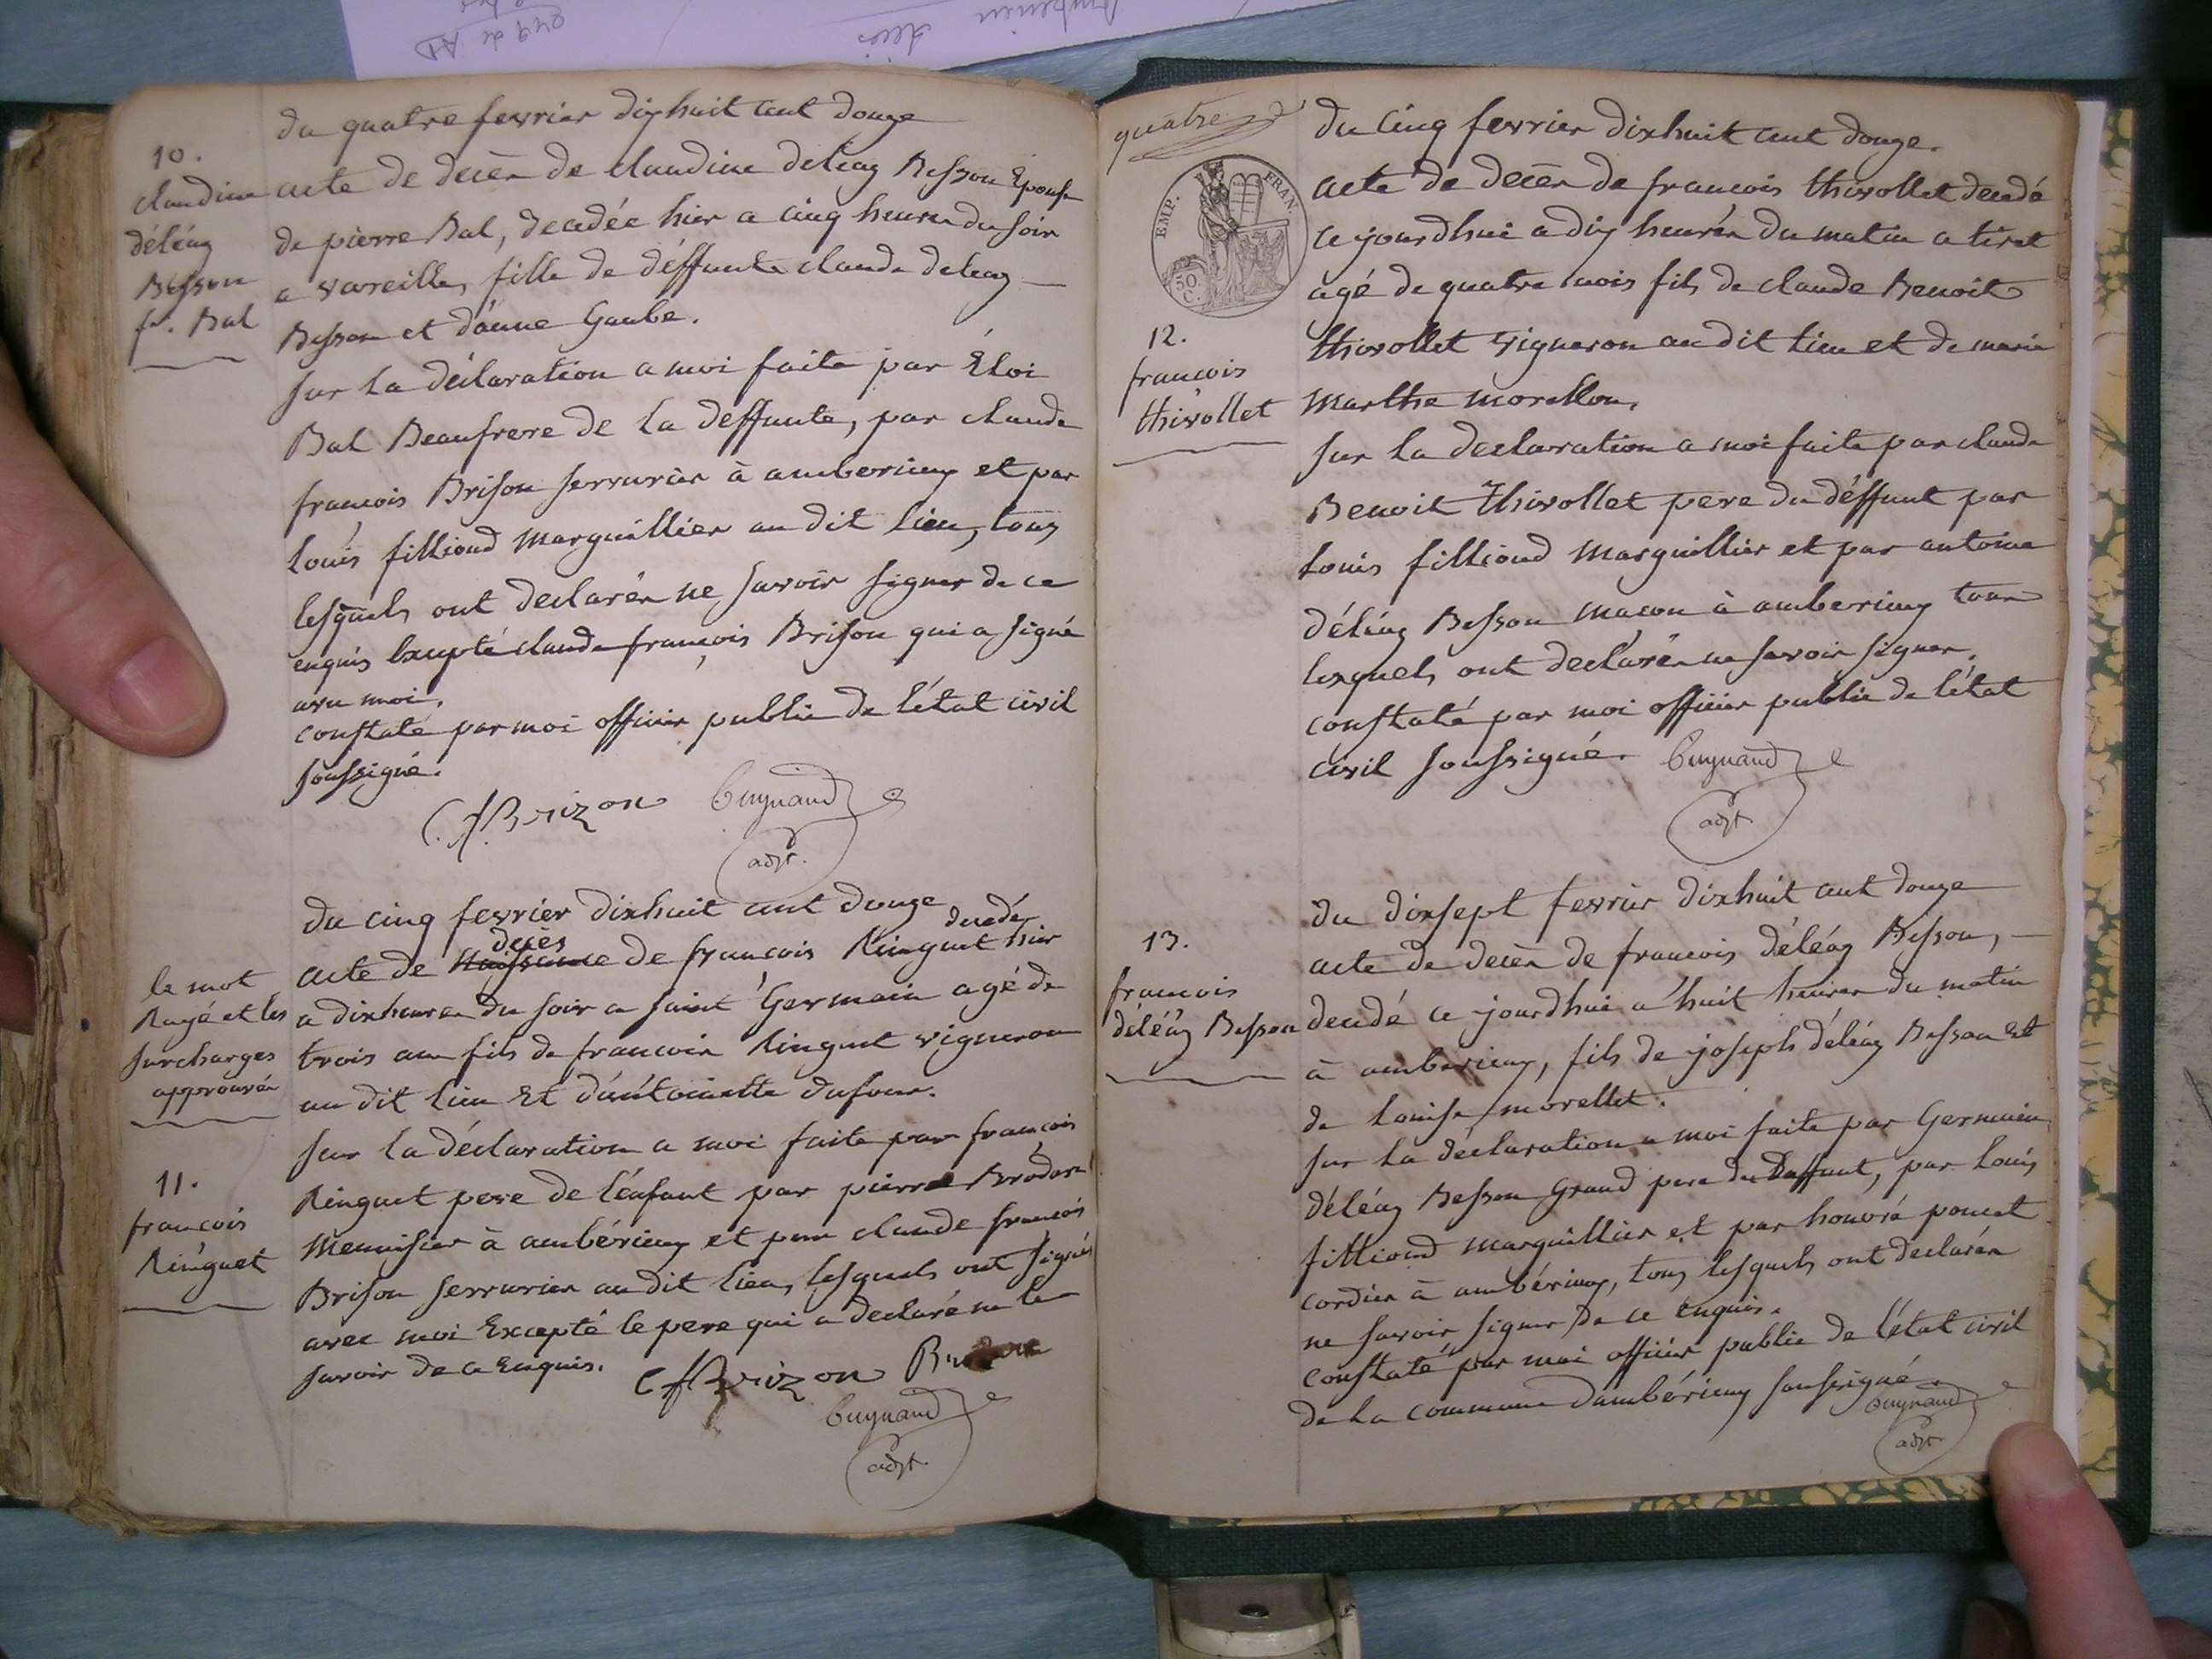 10.
claudine
déléaz
Besson
fe. Bal
du quatre fevrier dixhuit cent douze
acte de decès de claudine deleaz Besson Epouse
de pierre Bal, decedée hier a cinq heures du soir
a vareille, fille de déffunts claude deleaz
Besson et d'anne Gaube.
sur la déclaration a moi faite par Éloi
Bal Beaufrere de la deffunte, par claude
francois Brison serrurier à amberieux et par
louis filliond Marguillier au dit lieu, tous
lesquels ont declarés ne savoir signer de ce
enquis Excepté claude françois Brison qui a signé
avec moi.
constaté par moi officier public de l'état civil
soussigné.
C. f. Brizon Cuynaud
adjt.
le mot
Rayé et les
surcharges
approuvés
11.
francois
Ringuet
du cinq fevrier dixhuit cent douze
decedé
decès
acte de Naissance de francois Ringuet hier
a dix heures du soir a saint Germain agé de
trois ans fils de francois Ringuet vigneron
au dit lieu Et d'antoinette dufour.
sur la déclaration a moi faite par francois
Ringuet pere de l'enfant par pierre Brodar
Menuisier à ambérieux et par claude francois
Brison serrurier au dit lieu, lesquels ont signés
avec moi Excepté le pere qui a declaré ne le
savoir de ce Enquis.
C f Brizon
Cuynaud
adjt.
quatre
EMP. FRAN.
50
C.
12.
francois
thivollet
du cinq fevrier dixhuit cent douze.
acte de decès de francois thivollet decedé
ce jourdhui a dix heures du matin a tiret
agé de quatre mois fils de claude Benoit
thivollet vigneron au dit lieu et de marie
Marthe morellon,
sur la declaration a moi faite par claude
Benoit Thivollet pere du déffunt par
louis filliond Marguillier et par antoine
déléaz Besson macon à amberieux tous
lesquels ont declarés ne savoir signer.
constaté par moi officier public de l'état
civil soussigné. Cuynaud
adjt
13.
francois
déléaz Besson
du dixsept fevrier dixhuit cent douze
acte de decès de francois déléaz Besson,
decedé ce jourdhui a huit heures du matin
à amberieux, fils de joseph déléaz Besson Et
de louise morellet.
sur la déclaration a moi faite par Germain
déléaz Besson Grand pere du Deffunt, par louis
filliond marguillier et par honoré poncet
cordier à ambérieux, tous lesquels ont declarés
ne savoir signer de ce Enquis.
constaté par moi officier public de l'état civil
de la commune d'ambérieux soussigné.
Cuynaud
adjt